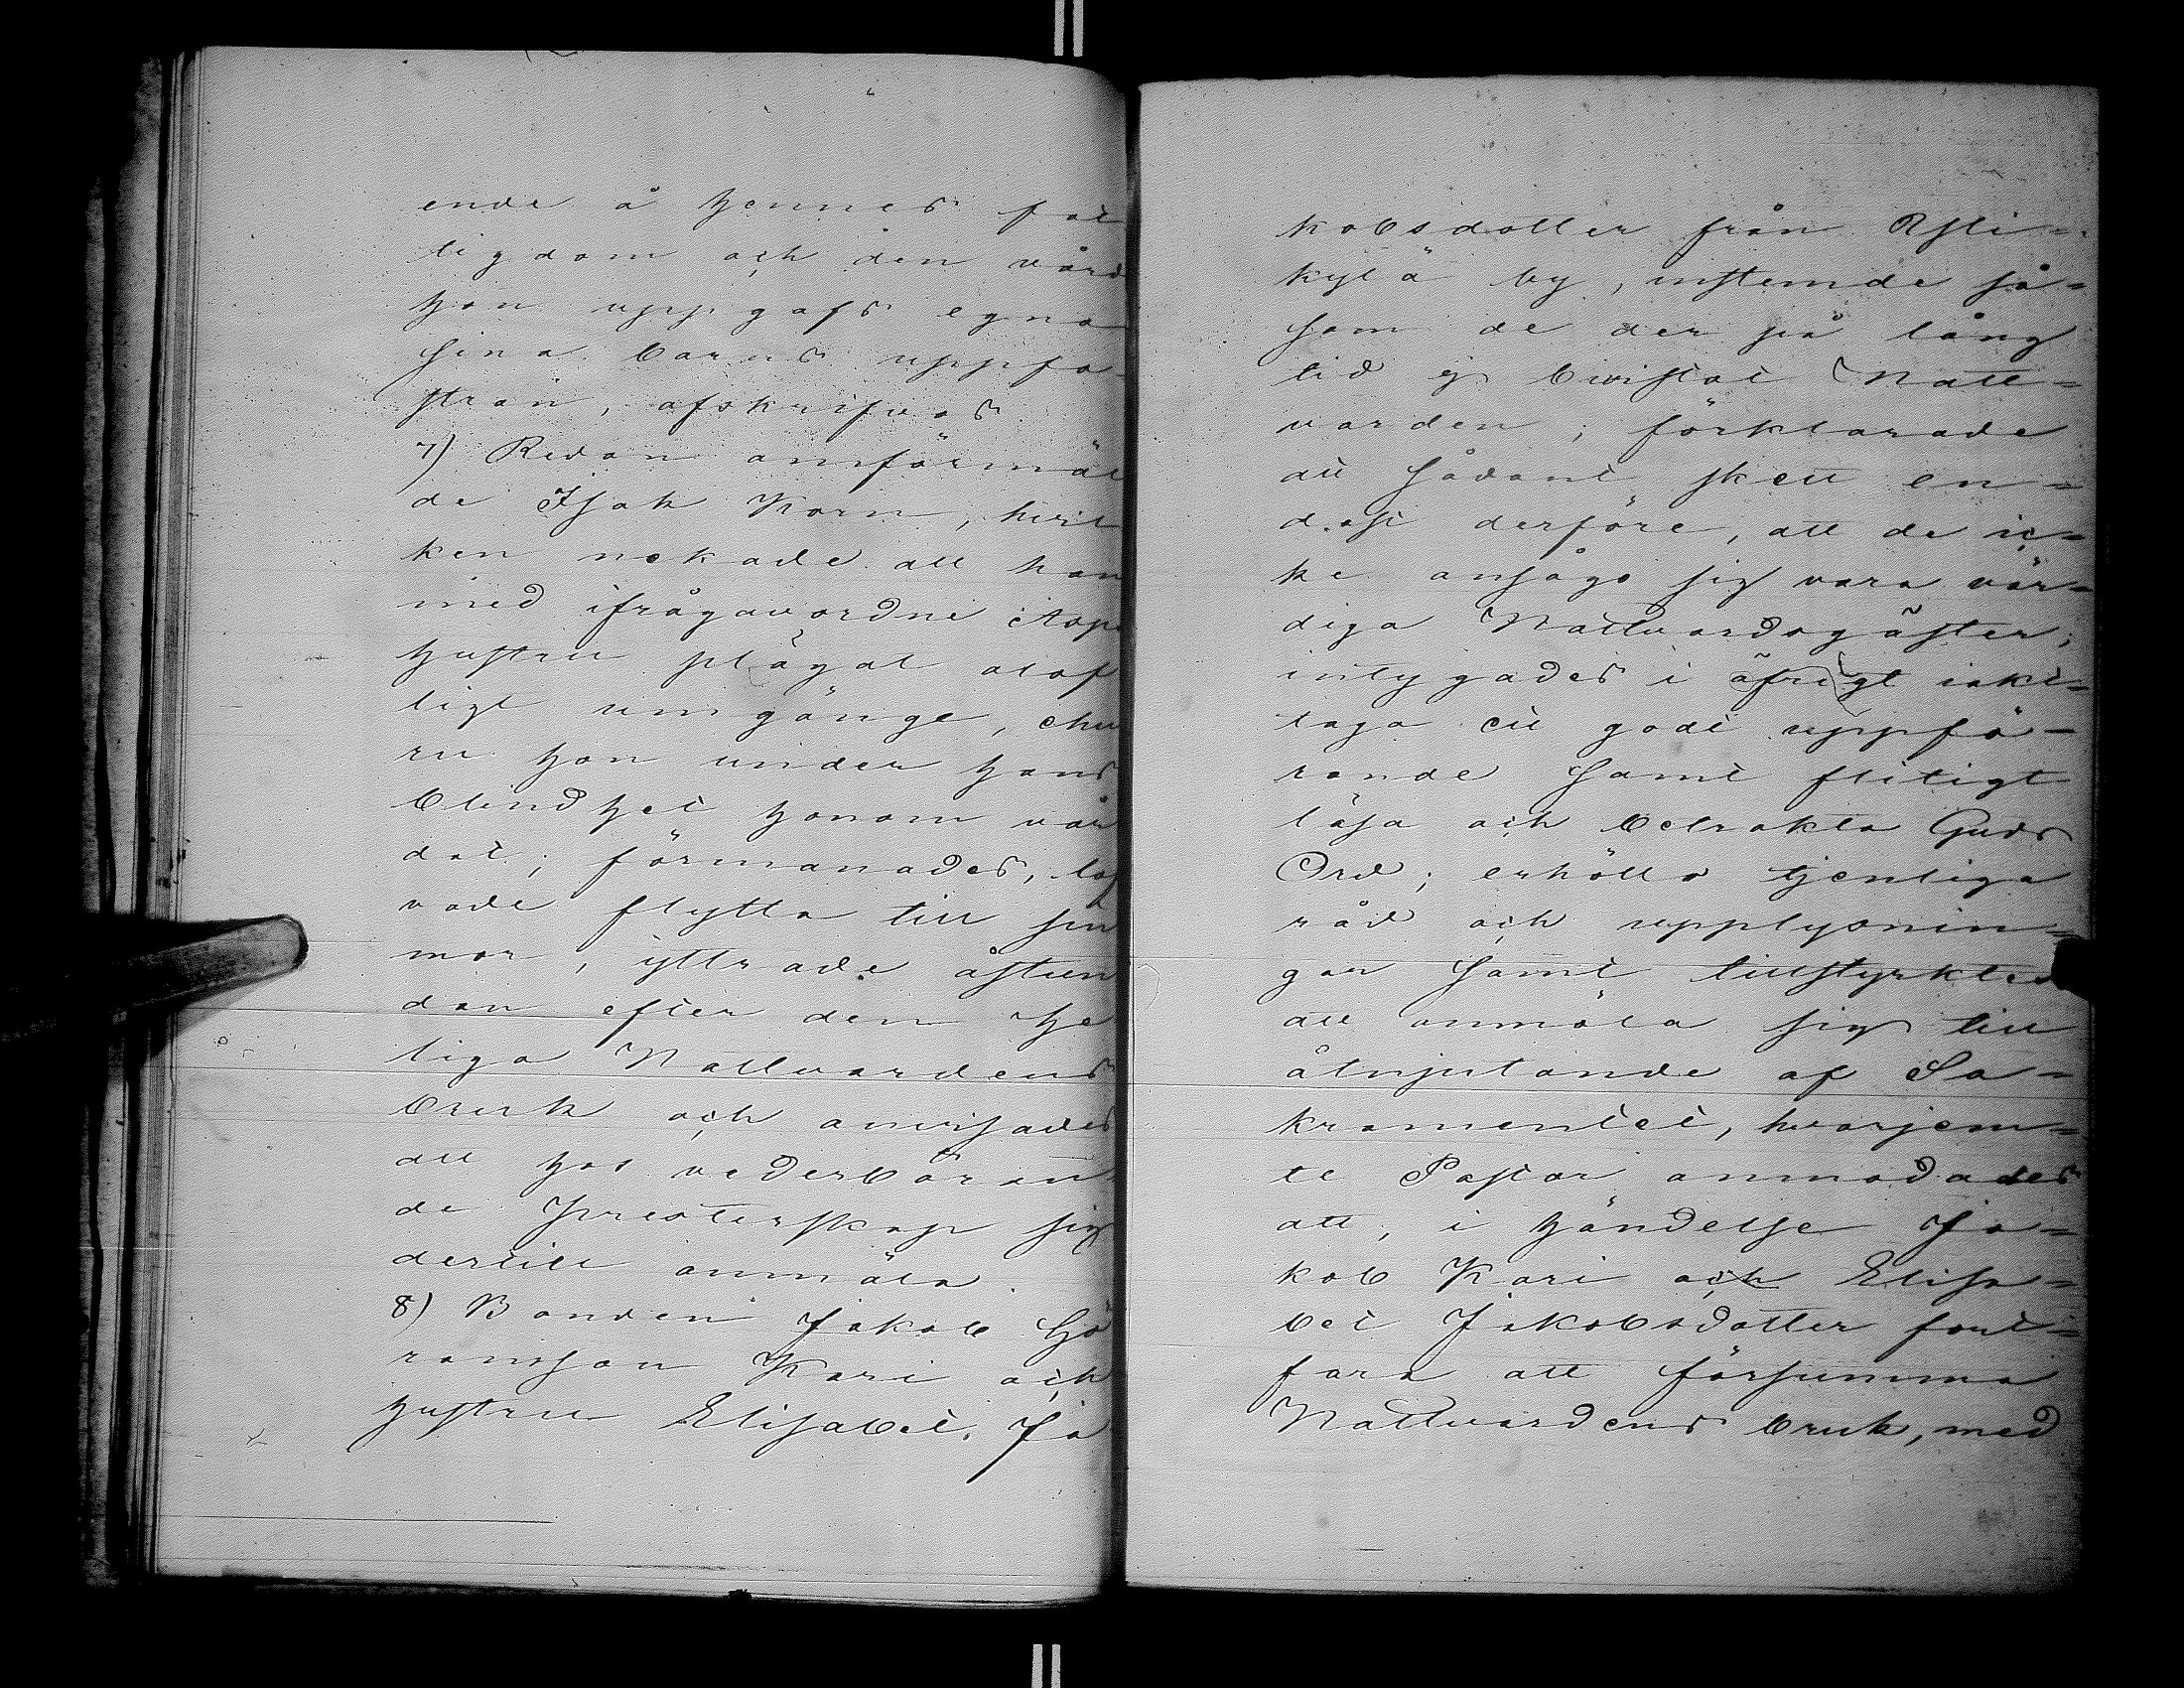 ende å hennes fat
tigdom och den vård
hon uppgafs egna
sina barns uppfo-
stran, afskrifvas
7) Redan omförmäl
de Isak Korn, hvil
ken nekade att han
med ifrågavordne
hustru plägat olof
ligt umgänge, ehu
ru hon under hans
blindhet honom vår
dat; förmanades, lof
vade flytta till sin
mor, yttrade åstun
dan efter den He
liga Nattvardens
bruk och anvisades
att hos vederböran
de Presterskap sig
dertill anmäla.
8) Bonden Jakob Gö
ransson Kari och
hustru Elisabet Ja
kobsdotter från Ylli-
kylä by, instemde så-
som de der på lång
tid ej bivistat Natt-
varden; förklarade
att sådant skett en-
dast derföre, att de ic-
ke ansågo sig vara vär-
diga Nattvardsgäster;
intygades i öfrigt iakt-
taga ett godt uppfö-
rande samt flitigt
läsa och betrakta Guds
Ord; erhöllo tjenliga
råd och upplysnin-
gar samt tillstyrktes
att anmäla sig till
åtnjutande af Sa-
kramentet, hvarjem-
te Pastor anmodades
att, i händelse Ja-
kob Kari och Elisa-
bet Jakobsdotter fort-
fara att försumma
Nattvardens bruk, med